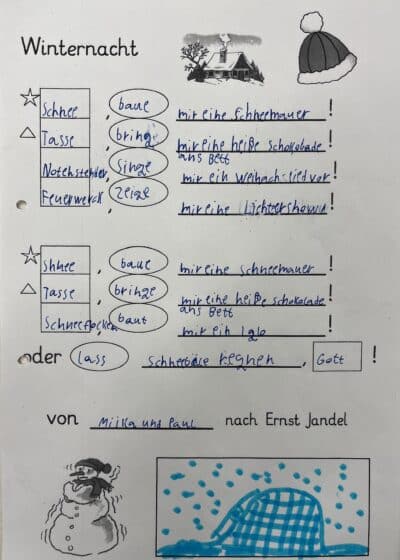 Winternacht
Schnee, baue mir eine Schneemauer!
Tasse, bringe mir eine heiße schokolade!
ans Bett
Notenständer, singe mir ein Weihachtslied vor!
Feuerwerck, zeige mir eine Lichtershow!
Shnee, baue mir eine schneemauer!
Tasse, bringe mir eine heiße schokolade!
ans Bett
Schneeflocken, baut mir ein Iglo!
oder lass Schneebälle regnen, Gott!
von und Paul nach Ernst Jandel